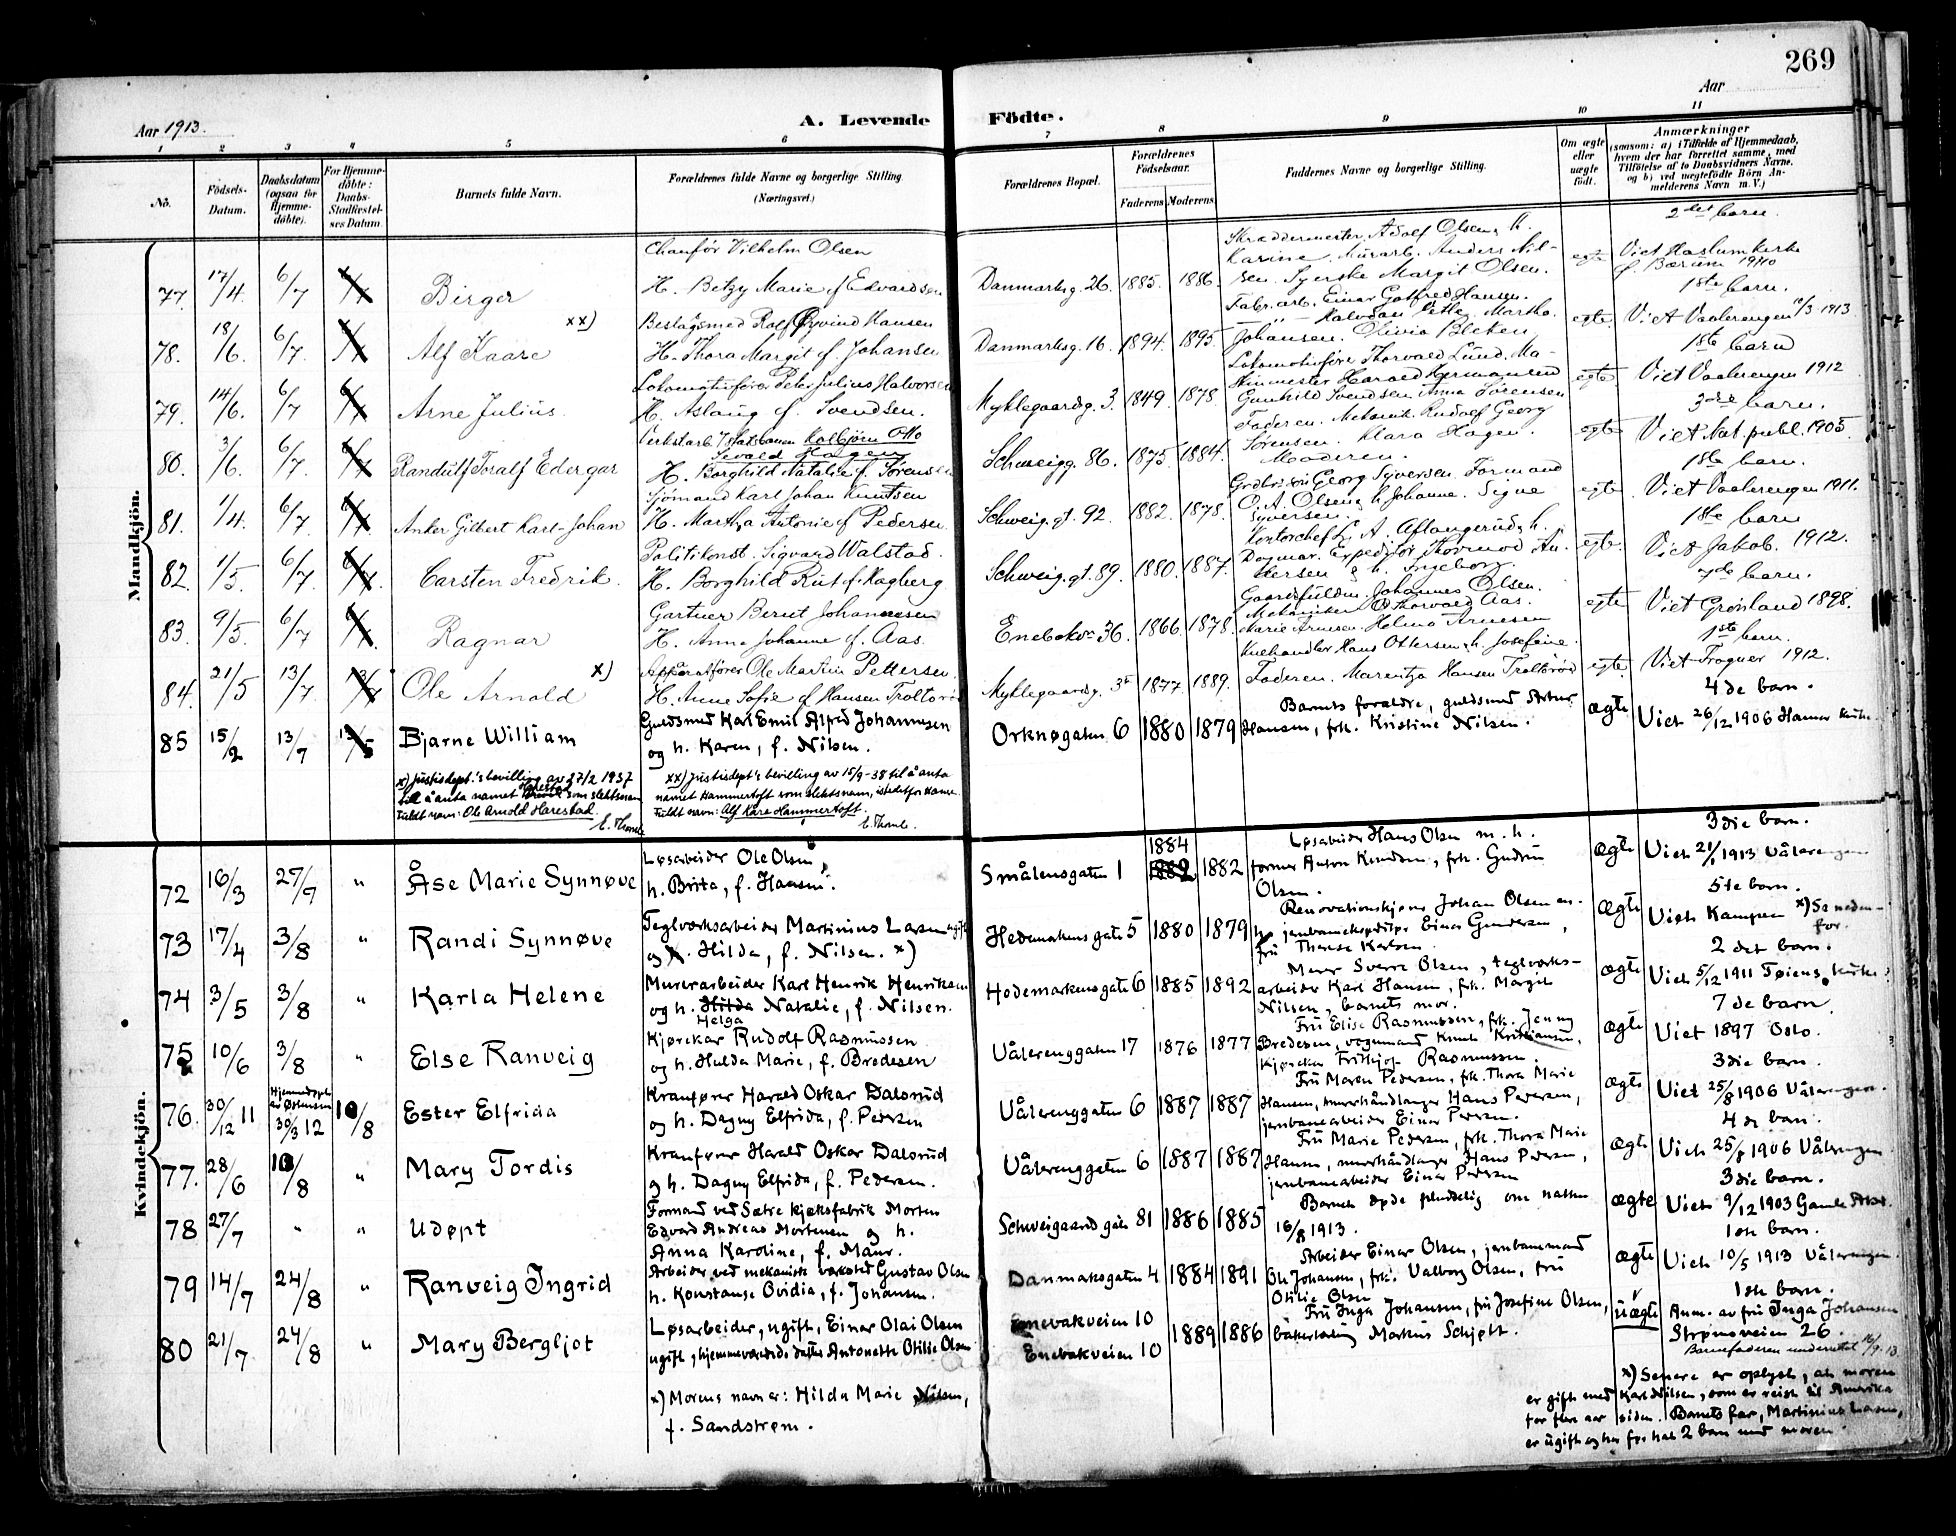 269
Aar 1913.
A. Levende
Födte.
Aar
1 2 3 4 5 6 7 8 9 10 11
No.
Födsels-Datum.
Daabsdatum (ogsaa for Hjemmedöbte).
For Hjemmedöbte: Daabs-Stadfæstelses Datum.
Barnets fulde Navn.
Forældrenes fulde Navne og borgerlige Stilling (Næringsvei.)
Forældrenes Bopæl.
Forældrenes Födselsaar.
Faderens Moderens
Faddernes Navne og borgerlige Stilling.
Om ægte eller uægte födt.
Anmærkninger (saasom: a) i Tilfælde af Hjemmedaab, hvem der har forrettet samme, med Tilföielse af to Daabsvidners Navne. og b) ved uegtefödte Börn Anmelderens Navn m.V.)
Mandkjön.
77. 17/4. 6/7 Birger
Chauför Vilhelm Olsen
H. Betzy Marie f. Edvardsen
Danmarksg. 26. 1885. 1886.
Skræddermester Adolf Olsen, h.
Karine. Murarb. Anders Nilsen. Syerske Margit Olsen.
egte
2det barn.
Viet Haslum kirke
f. Bærum 1910
78. 18/6. 6/7. Alf Kaare xx)
Beslagsmed Rolf Øyvind Hansen
H. Thora Margit f. Johansen
Danmarksg. 16. 1894. 1895.
Fabr. arb. Einar Gotfred Hansen.
Johansen. Olivia Bleken
egte
1ste barn.
Viet Vaalerengen 10/3 1913
79. 14/6. 6/7 Arne Julius.
Lokomotivförer Peter Julius Halvorsen
H. Aslaug f. Svendsen.
Myklegaardsg. 3. 1849. 1878.
Lokomotivförer Thorvald Lund. Maskinmester Harald Hermansen
Gunhild Svendsen Anna Sörensen
egte
1ste barn
Viet Vaalerengen 1912
80. 3/6. 6/7. Randulf Toralf Edergar
Verkstarb. v/Statsbanen Kolbjörn Otto
Sevald Hagen
H. Borghild Natalie f. Sörensen
Schweigg. 86. 1875. 1884.
Faderen. Mekanik Rudolf Georg
Sörensen. Klara Hagen.
Moderen.
egte
3die barn.
Viet Not. publ. 1905.
81. 1/4. 6/7. Anker Gilbert Karl-Johan
Sjömand Karl Johan Knutsen
H. Martha Antonie f. Pedersen
Schweig. gt. 92. 1882. 1878.
Georg Syversen. Formand
O. A. Olsen, h. Johanne. Signe
Syversen.
egte
1ste barn.
Viet Vaalerengen 1911.
82. 1/5. 6/7. Carsten Fredrik.
Politikonst. Sigvard Walstad.
H. Borghild Rut f. Hagberg
Schweig. gt. 89. 1880. 1887.
Kontorchef L. A. Aflangerud, h.
Dagmar. Expeditör Thormod Andersen & h. Ingeborg.
egte
1ste barn
Viet Jakob. 1912.
83. 9/5. 6/7. Ragnar
Gartner Bernt Johannesen
H. Anna Johanne f. Aas.
Enebakv. 36. 1866. 1878.
Johannes Olsen.
Mekaniker Thorvald Aas.
Marie Arnesen. Helma Arnesen
egte
7de barn.
Viet Grönland 1898.
84. 21/5 13/7 Ole Arnold x)
Apparatförer Ole Martin Pettersen.
H. Anne Sofie f. Hansen Trolterød
Myklegaardsg. 3 1877 1889.
Kuehandler Hans Ottersen, h. Josefine.
Faderen. Marentza Hansen Troltørød
egte
1ste barn.
Viet Frogner 1912.
85 15/2 13/7 Bjarne William
Guldsmed Karl Emil Alfred Johannesen
og h. Karen, f. Nilsen.
Orknøgaten 6 1880 1879
Barnets forældre, guldsmed Artur
Hansen, frk. Kristine Nilsen.
ægte
4de barn.
Viet 26/12 1906 Hamar kirke.
x) Justisdept.'s bevilling av 27/2 1937
til å anta navnet Harestad som slektsnavn
Fuldt navn: Ole Arnold Harestad.
E. Thomle
xx) Justisdept's bevilling av 15/9-38 til å anta
navnet Hammertoft som slektsnavn, istedetfor Hansen
Fuldt navn: Alf Kåre Hammertoft.
E. Thomle.
Kvindekjön.
72 16/3 27/7 " Åse Marie Synnøve
Løsarbeider Ole Olsen,
h. Brita, f. Hansen.
Smålensgaten 1 1884 1882 1882
Løsarbeider Hans Olsen m. h.
former Anton Knudsen, frk. Gudrun
Olsen.
ægte
3die barn.
Viet 21/1 1913 Vålerengen
73 17/4 3/8 " Randi Synnøve
Teglverksarbeider Martinius Larsen ugift
og h. Hilda, f. Nilsen. x)
Hedemarkensgaten 5 1880 1879
Renovationskjører Johan Olsen en-
h. jernbaneekspeditør Einar Gundersen,
fru Therese Karlsen.
ægte
5te barn.
Viet Kampen x) Se neden-
for.
74 3/5 3/8 " Karla Helene
Murerarbeider Karl Henrik Henriksen
og h. Hilda Natalie, f. Nilsen.
Helga
Hedemarkensgaten 6 1885 1892
Murer Sverre Olsen, teglverks-
arbeider Karl Hansen, frk. Margit
Nilsen, barnets mor.
ægte
2det barn.
Viet 5/12 1911 Tøiens kirke.
75 10/6 3/8 " Else Ranveig
Kjørekar Rudolf Rasmussen
og h. Hulda Marie, f. Bredesen
Vålerenggaten 17 1876 1877
Fru Elise Rasmussen, frk. Jenny
Bredesen, vognmand Knut Kristiansen,
kjørekar Fridtjof Rasmussen.
ægte
7de barn.
Viet 1897 Oslo.
76. 30/12 11 Hjemmedøpt
30/3 12 10/8 Ester Elfrida
Kranfører Harald Oskar Dalsrud
og h. Dagny Elfrida, f. Pedersen
Vålerenggaten 6 1887 1887
Fru Maren Pedersen, frk. Thora Marie
Hansen, murerhåndlanger Hans Pedersen,
jernbanearbeider Einar Pedersen.
ægte
3die barn.
Viet 25/8 1906 Vålerengen.
77. 28/6 10/8 " Mary Tordis
Kranfører Harald Oskar Dalsrud
og h. Dagny Elfrida, f. Pedersen.
Vålerenggaten 6 1887 1887
Fru Marie Pedersen, frk. Thora Marie
Hansen, murerhåndlanger Hans Pedersen,
jernbanearbeider Einar Pedersen
ægte
4de barn.
Viet 25/8 1906 Vålerengen
78 27/7 " " Udøpt
Formand ved Sætre kjæksfabrik Morten
Edvard Andreas Mortensen og h.
Anna Karoline, f. Maur.
Schweigaardsgate 81 1886 1885
Barnet døde pludselig om natten
16/8 1913.
ægte
3die barn.
Viet 9/12 1903 Gamle Aker
79 14/7 24/8 " Ranveig Ingrid
Arbeider ved mekanisk verksted Gustav Olsen
h. Konstanse Ovidia, f. Johansen.
Danmarksgaten 4 1884 1891
Arbeider Einar Olsen, jernbanemand
Ole Johansen, frk. Valborg Olsen, fru
Otilie Olsen
ægte
1ste barn.
Viet 10/5 1913 Vålerengen.
80 21/7 24/8 " Mary Bergljot
Løsarbeider, ugift, Einar Olai Olsen
ugift, hjemmeværende datter Antonette Otilie Olsen
Enebakveien 10
Enebakveien 10
1889 1886
Fru Inga Johansen, fru Josefine Olsen,
bakerlærling Markus Schjøtt.
uægte
1ste barn.
Anm. av fru Inga Johansen
Strømsveien 26.
Barnefaderen underrettet 16/9-13
x) Morens navn er: Hilda Marie Nilsen,
f. Sandstrøm.
x) Senere er oplyst, at moren
er gift med Karl Nilsen, som er reist til Amerika
for flere aar siden. Barnets far, Martinius Larsen,
er ugift og har før hat 2 barn med moren.